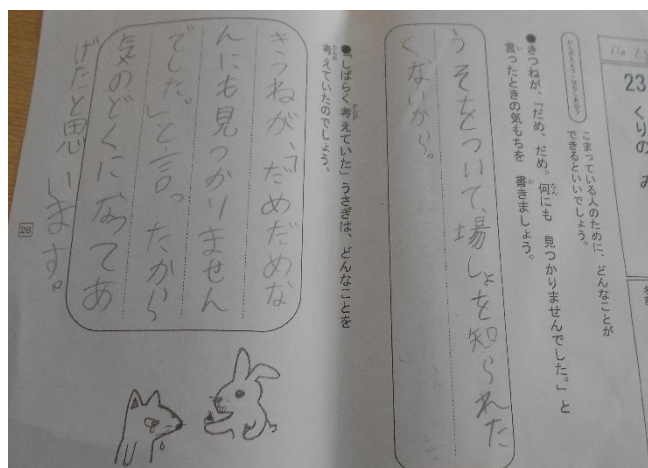 11月2
23
くりの み
こまっている人のために、どんなことが
できるといいでしょう。
●きつねが、「だめ、だめ。何にも 見つかりませんでした。」と
言ったときの気もちを 書きましょう。
うそをついて、場しょを知られた
くないから。
●「しばらく考えていた」うさぎは、どんなことを
考えていたのでしょう。
きつねが、「だめだめな
んにも見つかりません
でした。」と言ったから
気のどくになってあ
げたと思います。
28